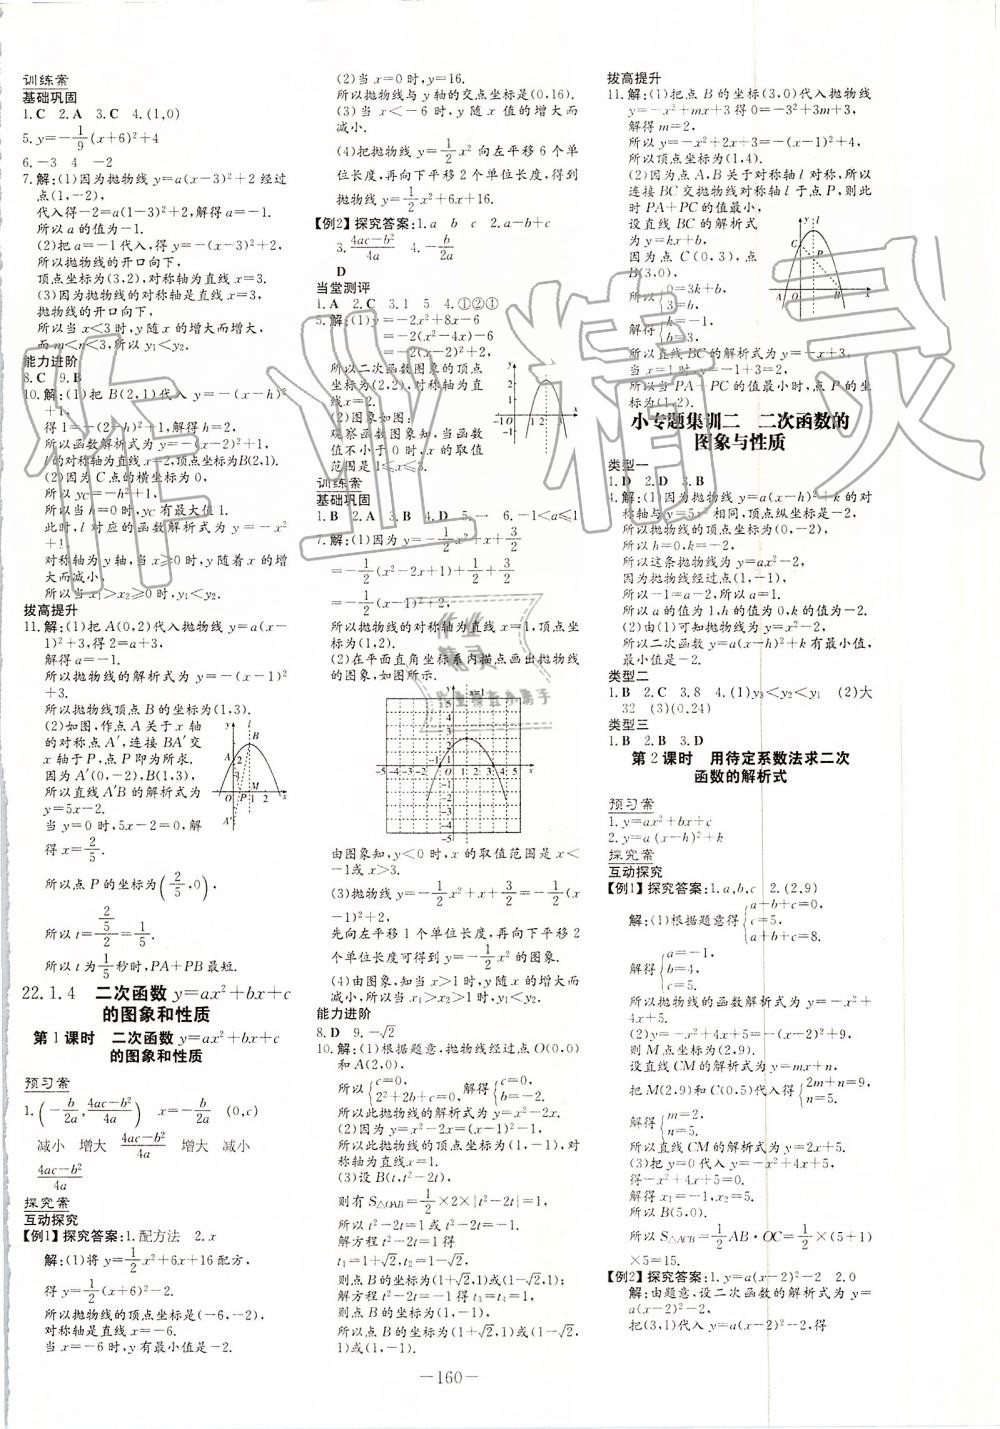 训练案
基础巩固
1.C 2.A 3.C 4.(1,0)
5.y=-1/9(x+6)²+4
6.-3 4 -2
7.解:(1)因为抛物线y=a(x-3)²+2经过
点(1,-2),
代入得-2=a(1-3)²+2,解得a=-1.
所以a的值为-1.
(2)把a=-1代入得y=-(x-3)²+2,
所以抛物线的开口向下,
顶点坐标为(3,2),对称轴为直线x=3.
(3)因为抛物线的对称轴是直线x=3,
抛物线的开口向下,
所以当x<3时,y随x的增大而增大,
而m<n<3,所以y₁<y₂.
能力进阶
8.C 9.B
10.解:(1)把B(2,1)代入y=-(x-h)²
+1,
得1=-(2-h)²+1,解得h=2.
所以函数解析式为y=-(x-2)²+1
的对称轴为直线x=2,顶点坐标为B(2,1).
(2)因为C点的横坐标为0,
所以yc=-h²+1,
所以当h=0时,yc有最大值1.
此时,l对应的函数解析式为y=-x²
+1.
对称轴为y轴,当x≥0时,y随着x的增
大而减小,
所以当x₁>x₂≥0时,y₁<y₂.
拔高提升
11.解:(1)把A(0,2)代入抛物线y=a(x-
1)²+3,得2=a+3,
解得a=-1.
所以抛物线的解析式为y=-(x-1)²
+3.
所以抛物线顶点B的坐标为(1,3).
(2)如图,作点A关于x轴
的对称点A′,连接BA′交
x轴于P,点P即为所求.
因为A′(0,-2),B(1,3),
所以直线A′B的解析式为
y=5x-2.
当y=0时,5x-2=0,解
得x=2/5.
所以点P的坐标为(2/5,0),
所以t=(2/5)/2=1/5.
所以t为1/5秒时,PA+PB最短.
22.1.4 二次函数y=ax²+bx+c
的图象和性质
第1课时 二次函数y=ax²+bx+c
的图象和性质
预习案
1.(-b/2a,(4ac-b²)/4a) x=-b/2a (0,c)
减小 增大 (4ac-b²)/4a 增大 减小
(4ac-b²)/4a
探究案
互动探究
【例1】探究答案:1.配方法 2.x
解:(1)将y=1/2x²+6x+16配方,
得y=1/2(x+6)²-2.
所以抛物线的顶点坐标是(-6,-2),
对称轴是直线x=-6.
当x=-6时,y有最小值是-2.
(2)当x=0时,y=16.
所以抛物线与y轴的交点坐标是(0,16).
(3)当x<-6时,y随x值的增大而
减小.
(4)把抛物线y=1/2x²向左平移6个单
位长度,再向下平移2个单位长度,得到
抛物线y=1/2x²+6x+16.
【例2】探究答案:1.a b c 2.a-b+c
3.(4ac-b²)/4a 4.-b/2a
D
当堂测评
1.A 2.C 3.1 5 4.①②①
5.解:(1)y=-2x²+8x-6
=-2(x²-4x)-6
所以二次函数图象的顶点
坐标为(2,2),对称轴为直
线x=2.
(2)图象如图:
观察函数图象知,当函数
值不小于0时,x的取值
范围是1≤x≤3.
训练案
基础巩固
1.B 2.A 3.B 4.D 5.一 6.-1<a≤1
7.解:(1)因为y=-1/2x²+x+3/2
=-1/2(x²-2x+1)+1/2+3/2
=-1/2(x-1)²+2.
所以抛物线的对称轴为直线x=1,顶点坐
标为(1,2).
(2)在平面直角坐标系内描点画出抛物线
的图象,如图所示.
由图象知,y<0时,x的取值范围是x<
-1或x>3.
(3)抛物线y=-1/2x²+x+3/2=-1/2(x
-1)²+2,
先向左平移1个单位长度,再向下平移2
个单位长度可得到y=-1/2x²的图象.
(4)由图象知当x>1时,y随x的增大而
减小,所以当x₁>x₂>1时,y₁<y₂.
能力进阶
8.D 9.-√2
10.解:(1)根据题意,抛物线经过点O(0,0)
和A(2,0),
所以{c=0, 2²+2b+c=0, 解得{c=0, b=-2.
所以此抛物线的解析式为y=x²-2x.
(2)因为y=x²-2x=(x-1)²-1,
所以此抛物线的顶点坐标为(1,-1),对
称轴为直线x=1.
(3)设B(t,t²-2t),
则有S△OAB=1/2×2×|t²-2t|=1,
所以t²-2t=1或t²-2t=-1.
解方程t²-2t=1得
t₁=1+√2,t₂=1-√2,
则点B的坐标为(1+√2,1)或(1-√2,1);
解方程t²-2t=-1得t₃=t₄=1,
则点B的坐标为(1,-1).
所以点B的坐标为(1+√2,1)或(1-√2,
1)或(1,-1).
拔高提升
11.解:(1)把点B的坐标(3,0)代入抛物线
y=-x²+mx+3得0=-3²+3m+3,
解得m=2,
所以y=-x²+2x+3=-(x-1)²+4.
所以顶点坐标为(1,4).
(2)因为点A,B关于对称轴l对称,所以
连接BC交抛物线对称轴l于点P,则此
时PA+PC的值最小,
设直线BC的解析式
为y=kx+b,
因为点C(0,3),点
B(3,0),
所以{0=3k+b, 3=b,
解得{k=-1, b=3.
所以直线BC的解析式为y=-x+3,
当x=1时,y=-1+3=2,
所以当PA+PC的值最小时,点P的坐
标为(1,2).
小专题集训二 二次函数的
图象与性质
类型一
1.D 2.D 3.B
4.解:(1)因为抛物线y=a(x-h)²+k的对
称轴与y=5x²相同,顶点纵坐标为-2,
所以抛物线的顶点坐标为(0,-2),
所以h=0,k=-2.
所以这条抛物线为y=ax²-2.
因为抛物线经过点(1,-1),
所以-1=a-2,所以a=1.
所以a的值为1,h的值为0,k的值为-2.
(2)由(1)可知抛物线为y=x²-2,
所以二次函数y=a(x-h)²+k有最小值,
最小值为-2.
类型二
1.B 2.C 3.8 4.(1)y₃<y₂<y₁ (2)大
32 (3)(0,24)
类型三
1.B 2.B 3.D
第2课时 用待定系数法求二次
函数的解析式
预习案
1.y=ax²+bx+c
2.y=a(x-h)²+k
探究案
互动探究
【例1】探究答案:1.a,b,c 2.(2,9)
解:(1)根据题意得{a-b+c=0, c=5, a+b+c=8.
解得{a=-1, b=4, c=5.
所以抛物线的函数解析式为y=-x²+
4x+5.
(2)y=-x²+4x+5=-(x-2)²+9,
则M点坐标为(2,9).
设直线MC的解析式为y=mx+n,
把M(2,9)和C(0,5)代入得{2m+n=9, n=5,
解得{m=2, n=5.
所以直线CM的解析式为y=2x+5.
(3)把y=0代入y=-x²+4x+5,
得-x²+4x+5=0.
解得x₁=-1,x₂=5.
所以B(5,0).
所以S△ACB=1/2AB·OC=1/2×(5+1)
×5=15.
【例2】探究答案:1.y=a(x-2)²-2 2.0
解:由题意,设二次函数的解析式为y=
a(x-2)²-2,
把(3,1)代入y=a(x-2)²-2,得
—160—